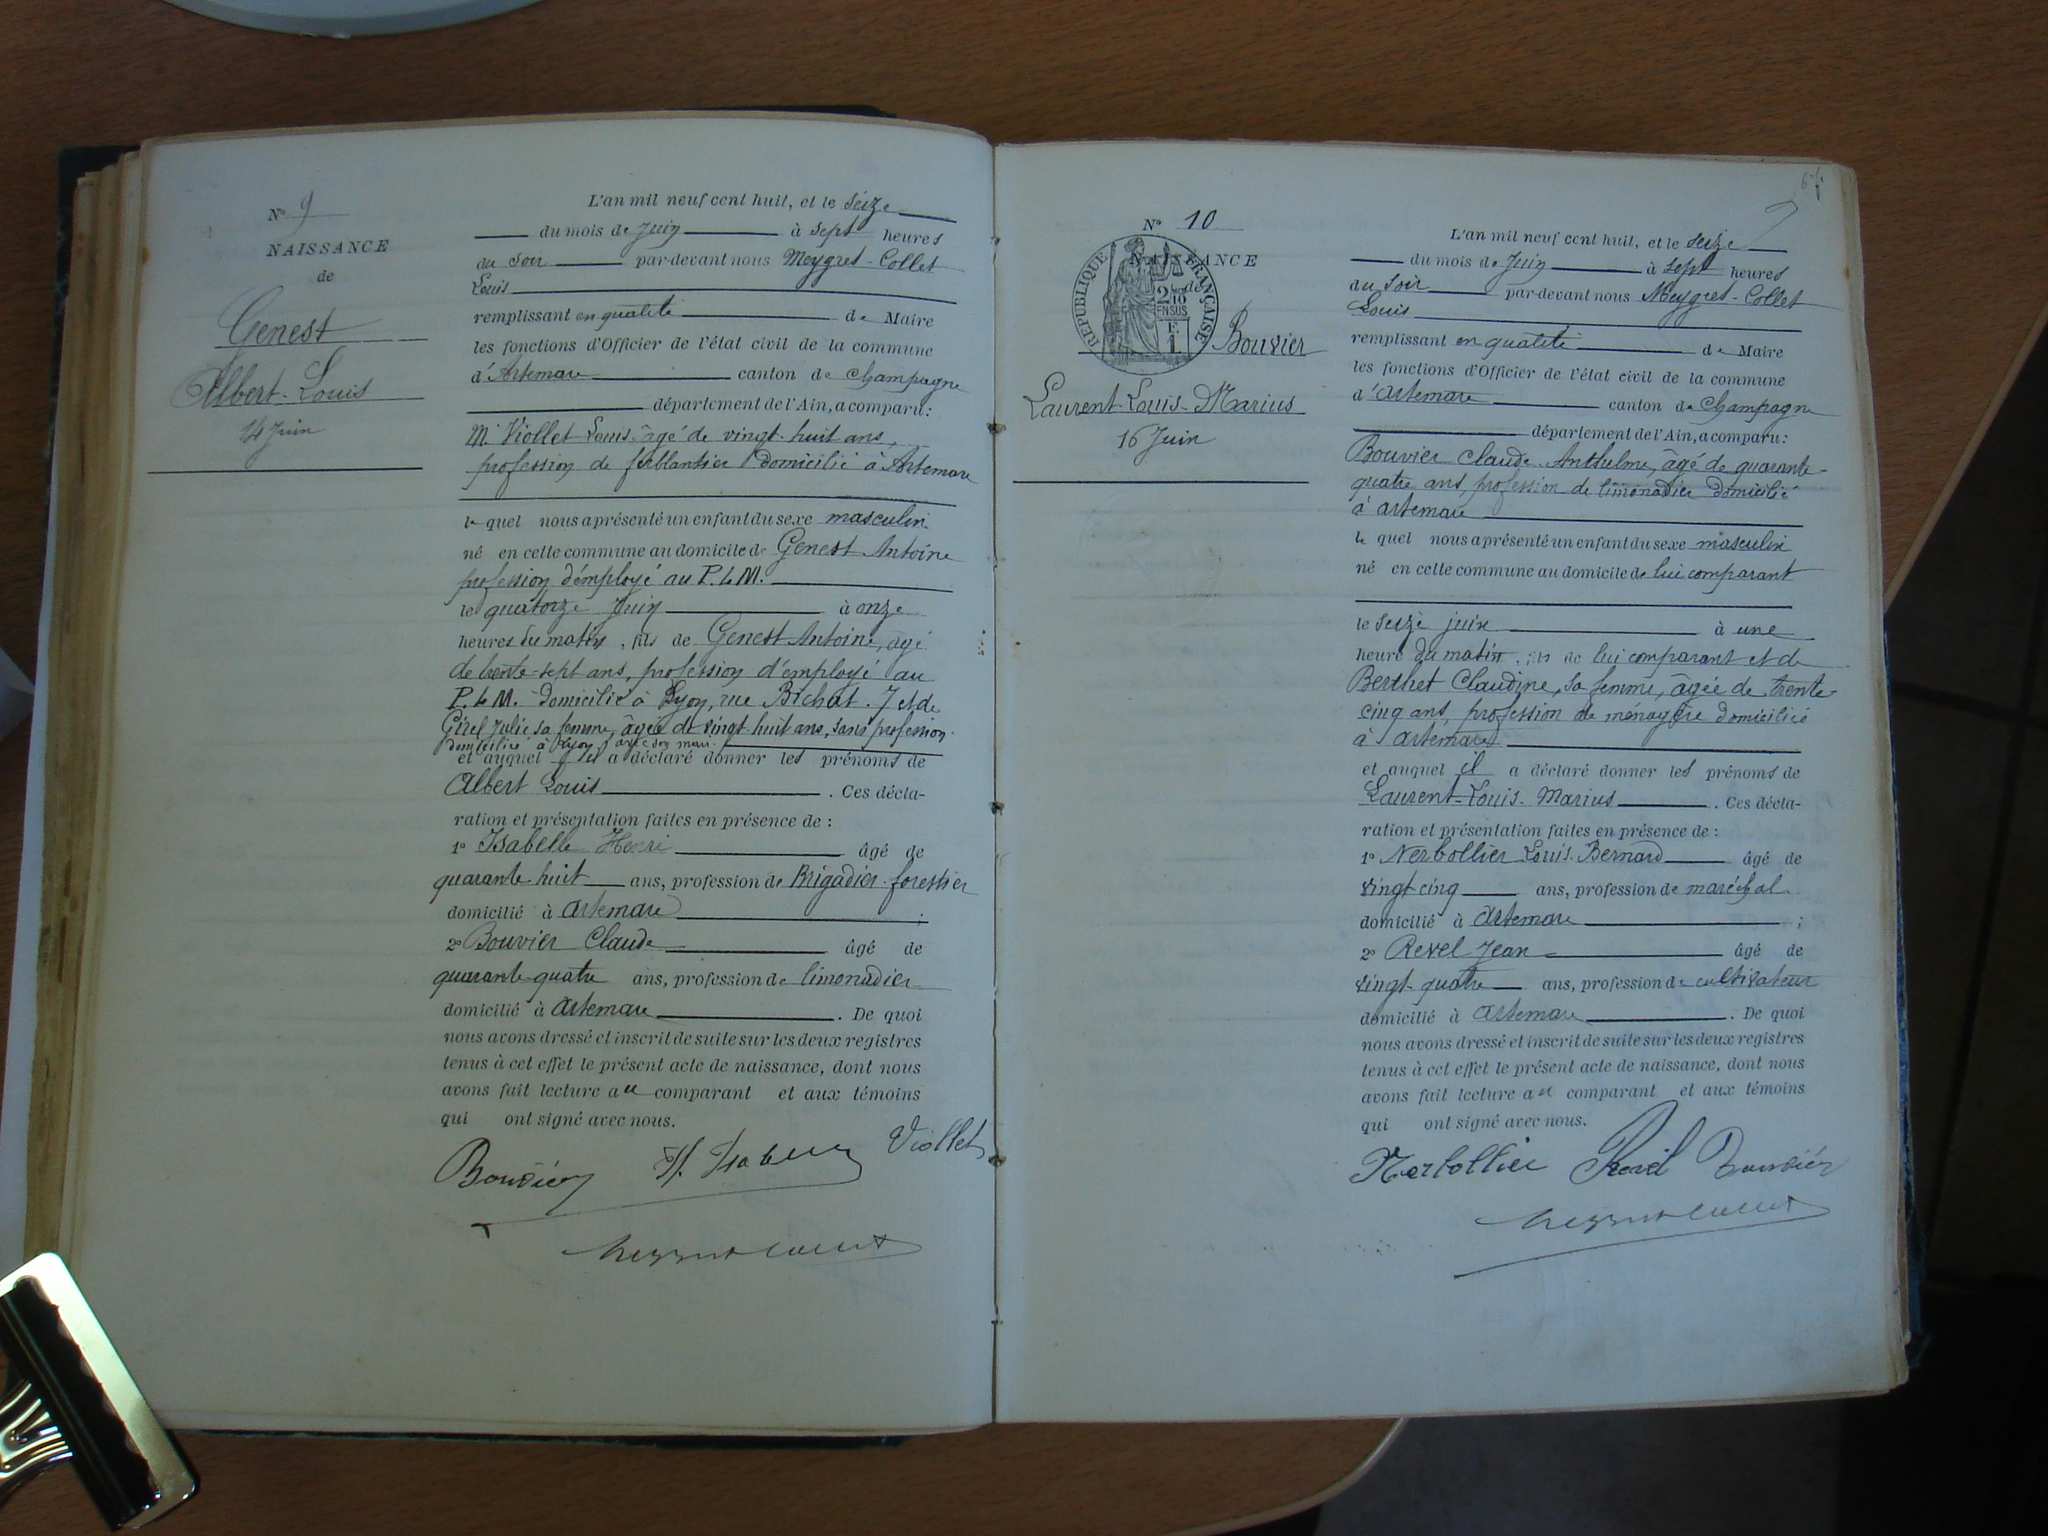 N° 9
NAISSANCE
de
Genest
Albert-Louis
14 Juin
L'an mil neuf cent huit, et le seize
du mois de Juin à sept heures
du soir par-devant nous Meygret-Collet
Louis
remplissant en qualité de Maire
les fonctions d'Officier de l'état civil de la commune
d'Artemare canton de Champagne
département de l'Ain, a comparu:
Mr Viollet Louis âgé de vingt-huit ans,
profession de ferblantier domicilié à Artemare
le quel nous a présenté un enfant du sexe masculin
né en cette commune au domicile de Genest Antoine
profession d'employé au P.L.M.
le quatorze Juin à onze
heures du matin, fils de Genest Antoine, agé
de trente-sept ans, profession d'employé au
P.L.M. domicilié à Lyon, rue Bichat. 7 et de
Girel Julie sa femme, âgée de vingt-huit ans, sans profession.
domiciliée à Lyon avec son mari.
et auquel il a déclaré donner les prénoms de
Albert Louis. Ces décla-
ration et présentation faites en présence de :
1° Isabelle Henri âgé de
quarante huit ans, profession de Brigadier-forestier
domicilié à Artemare ;
2° Bouvier Claude âgé de
quarante-quatre ans, profession de limonadier
domicilié à Artemare. De quoi
nous avons dressé et inscrit de suite sur les deux registres
tenus à cet effet le présent acte de naissance, dont nous
avons fait lecture au comparant et aux témoins
qui ont signé avec nous.
Bouvier H. Isabelle Viollet
Meygret Collet
67
N° 10
NAISSANCE
de
RÉPUBLIQUE FRANÇAISE
2/10 EN SUS
Bouvier
Laurent-Louis-Marius
16 Juin
L'an mil neuf cent huit, et le seize
du mois de Juin à sept heures
du soir par-devant nous Meygret-Collet
Louis
remplissant en qualité de Maire
les fonctions d'Officier de l'état civil de la commune
d'Artemare canton de Champagne
département de l'Ain, a comparu:
Bouvier Claude Anthelme, âgé de quarante-
quatre ans, profession de limonadier domicilié
à artemare
le quel nous a présenté un enfant du sexe masculin
né en cette commune au domicile de lui comparant
le seize juin à une
heure du matin, fils de lui comparant et de
Berthet Claudine, sa femme, âgée de trente
cinq ans, profession de ménagère domiciliée
à artemare
et auquel il a déclaré donner les prénoms de
Laurent-Louis-Marius. Ces décla-
ration et présentation faites en présence de :
1° Nerbollier Louis-Bernard âgé de
vingt cinq ans, profession de maréchal
domicilié à Artemare ;
2° Revel Jean âgé de
vingt-quatre ans, profession de cultivateur
domicilié à Artemare. De quoi
nous avons dressé et inscrit de suite sur les deux registres
tenus à cet effet le présent acte de naissance, dont nous
avons fait lecture au comparant et aux témoins
qui ont signé avec nous.
Nerbollier Revel Bouvier
Meygret Collet